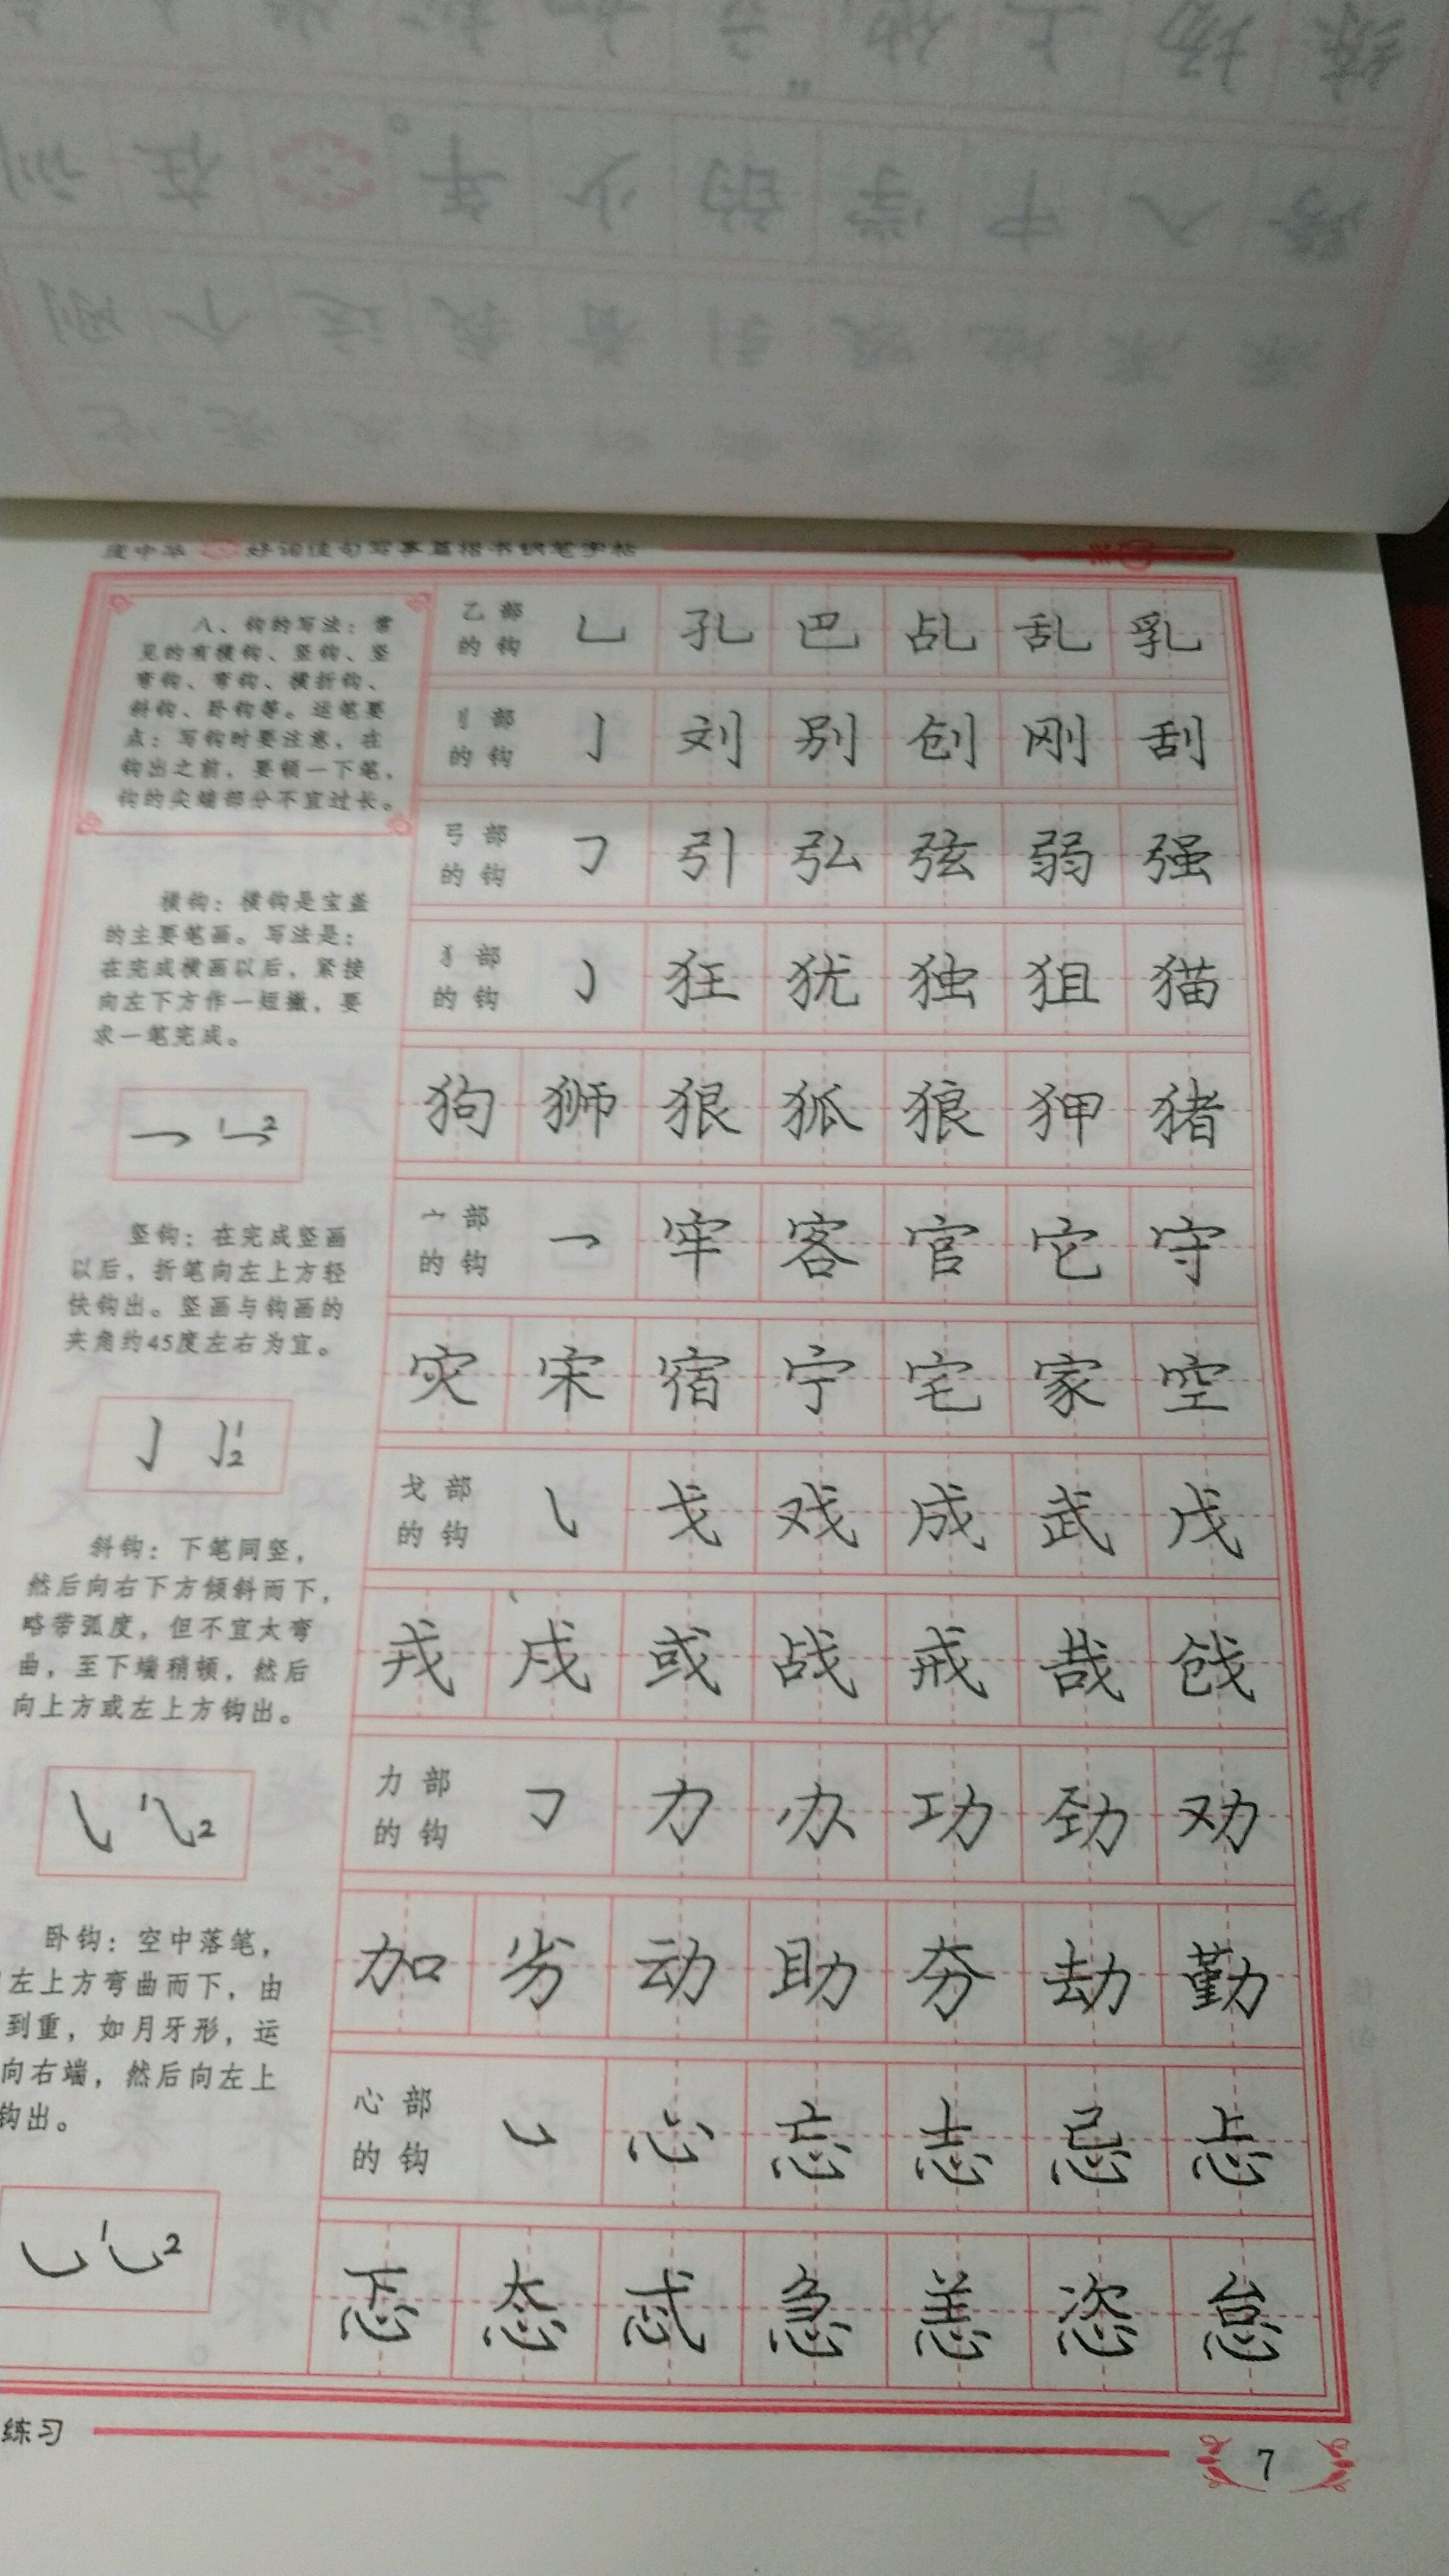 庞中华 好词佳句写事篇楷书钢笔字帖
八、钩的写法：常
见的有横钩、竖钩、竖
弯钩、弯钩、横折钩、
斜钩、卧钩等。运笔要
点：写钩时要注意，在
钩出之前，要顿一下笔，
钩的尖端部分不宜过长。
横钩：横钩是宝盖
的主要笔画。写法是：
在完成横画以后，紧接
向左下方作一短撇，要
求一笔完成。
1 2
竖钩：在完成竖画
以后，折笔向左上方轻
快钩出。竖画与钩画的
夹角约45度左右为宜。
1
2
斜钩：下笔同竖，
然后向右下方倾斜而下，
略带弧度，但不宜太弯
曲，至下端稍顿，然后
向上方或左上方钩出。
1 2
卧钩：空中落笔，
左上方弯曲而下，由
到重，如月牙形，运
向右端，然后向左上
钩出。
1 2
乙部的钩 乚 孔 巴 乩 乱 乳
刂部的钩 亅 刘 别 创 刚 刮
弓部的钩 引 弘 弦 弱 强
犭部的钩 狂 犹 独 狙 猫
狗 狮 狠 狐 狼 狎 猪
宀部的钩 牢 客 官 它 守
灾 宋 宿 宁 宅 家 空
戈部的钩 戈 戏 成 武 戊
戎 戍 或 战 戒 哉 戗
力部的钩 力 办 功 劲 劝
加 劣 动 助 夯 劫 勤
心部的钩 心 忘 志 忌 忐
忑 态 忒 急 恙 恣 怠
练习
7